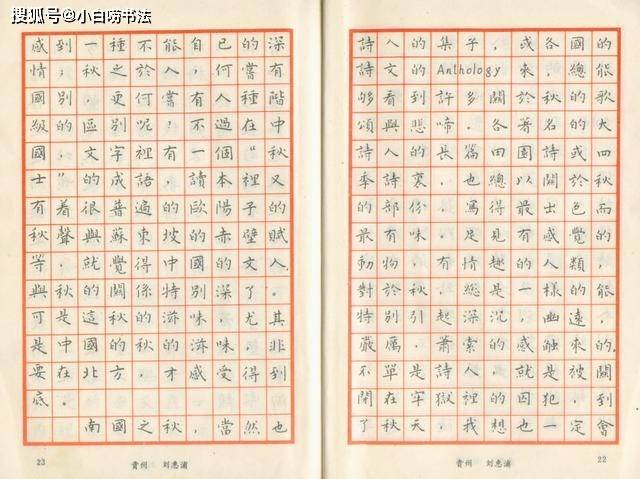 搜狐号@小白唠书法
詩人的集子,或各國的
詩文的Anthology來,總能
够看到許多關於秋的歌
頌與悲啼。各著名的大
詩人的長篇田園詩或四
季詩裏,也總以關於秋
的部份,寫得最出色而
最有味。足見有感覺的
動物,有情趣的人類,
對於秋,總是一樣的能
特別引起深沉,幽遠,
嚴厲,蕭索的感觸來的。
不單是詩人,就是被關
閉在牢獄裡的囚犯,到
了秋天,我想也一定會
貴州 刘惠浦 22
感到一種不能自已的深
情;秋之於人,何嘗有
國別,更何嘗有人種階
級的區別呢?不過在中
國,文字裡有一個“秋
士”的成語,讀本裡又
有着很普遍的歐陽子的
秋聲與蘇東坡的赤壁賦
等,就覺得中國的文人。
與秋的關係特別深了。
可是這秋的滋味,尤其
是中國的秋的滋味,非
要在北方,才感受得到
底。
南國之秋,當然也
23 貴州 刘惠浦